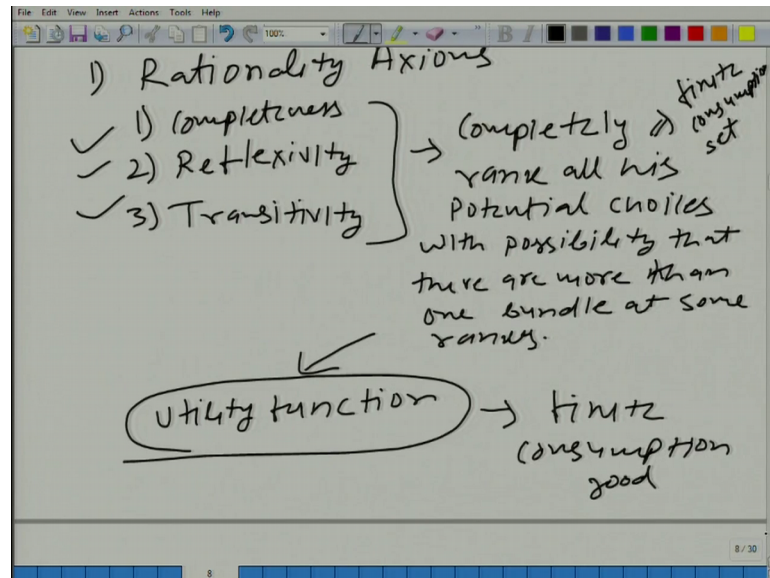 File Edit View Insert Actions Tools Help
100%
1) Rationality Axioms
1) Completeness
2) Reflexivity
3) Transitivity
→ Completely
rank all his
potential choices
with possibility that
there are more than
one bundle at some
ranks.
finite
consumption
set
Utility function → finite
consumption
good
8 / 30
8